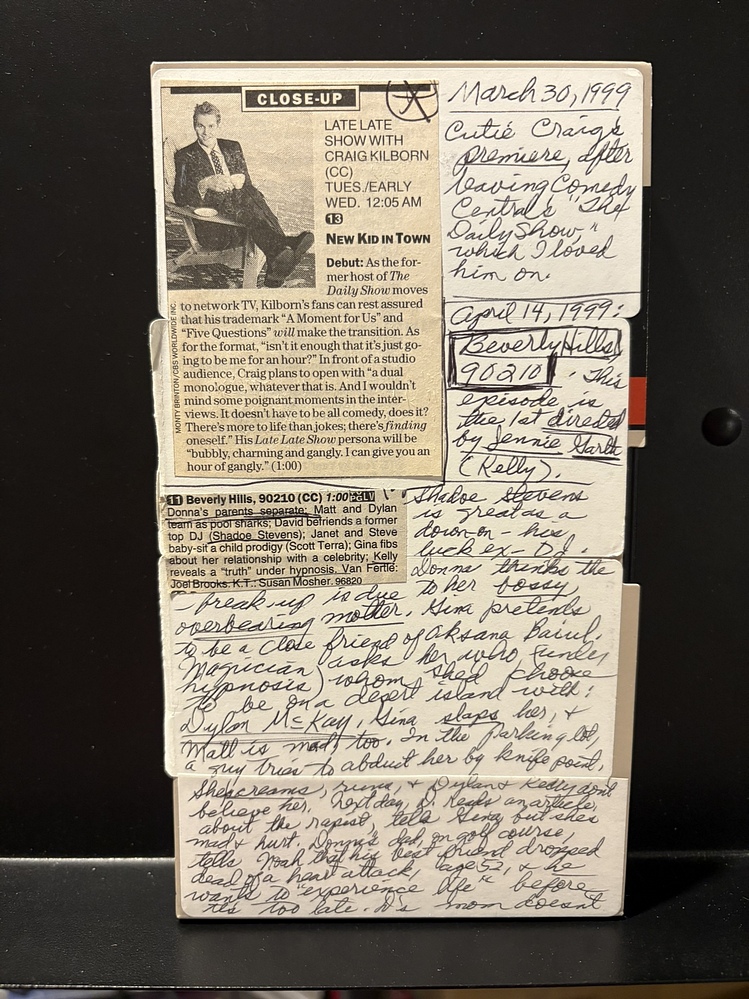 CLOSE-UP
LATE LATE
SHOW WITH
CRAIG KILBORN
(CC)
TUES./EARLY
WED. 12:05 AM
13
NEW KID IN TOWN
Debut: As the for-
mer host of The
Daily Show moves
to network TV, Kilborn's fans can rest assured
that his trademark "A Moment for Us" and
"Five Questions" will make the transition. As
for the format, "isn't it enough that it's just go-
ing to be me for an hour?" In front of a studio
audience, Craig plans to open with "a dual
monologue, whatever that is. And I wouldn't
mind some poignant moments in the inter-
views. It doesn't have to be all comedy, does it?
There's more to life than jokes; there's finding
oneself." His Late Late Show persona will be
"bubbly, charming and gangly. I can give you an
hour of gangly." (1:00)
MONTY BRINTON/CBS WORLDWIDE INC.
March 30, 1999
Cutie Craig's
premiere, after
leaving Comedy
Central's "The
Daily Show,"
which I loved
him on.
April 14, 1999:
Beverly Hills,
90210. This
episode is
the 1st directed
by Jennie Garth
(Kelly).
11 Beverly Hills, 90210 (CC) 1:00
Donna's parents separate; Matt and Dylan
team as pool sharks; David befriends a former
top DJ (Shadoe Stevens); Janet and Steve
baby-sit a child prodigy (Scott Terra); Gina fibs
about her relationship with a celebrity; Kelly
reveals a "truth" under hypnosis. Van Fertle:
Joel Brooks. K.T.: Susan Mosher. 96820
Shadoe Stevens
is great as a
down-on-his
luck ex-DJ.
Donna thinks the
break-up is due to her bossy,
overbearing mother. Gina pretends
to be a close friend of Oksana Baiul.
Magician asks her who (under
hypnosis) whom she'd choose
to be on a desert island with:
Dylan McKay. Gina slaps her, &
Matt is mad, too. In the parking lot,
a guy tries to abduct her by knife point,
She screams, runs, & Dylan & Kelly don't
believe her. Next day, D. reads an article
about the rapist, tells Gina, but she's
mad & hurt. Donna's dad, on golf course,
tells Noah that his best friend dropped
dead of a heart attack, age 52, & he
wants to "experience life" before
it's too late. D's mom doesn't